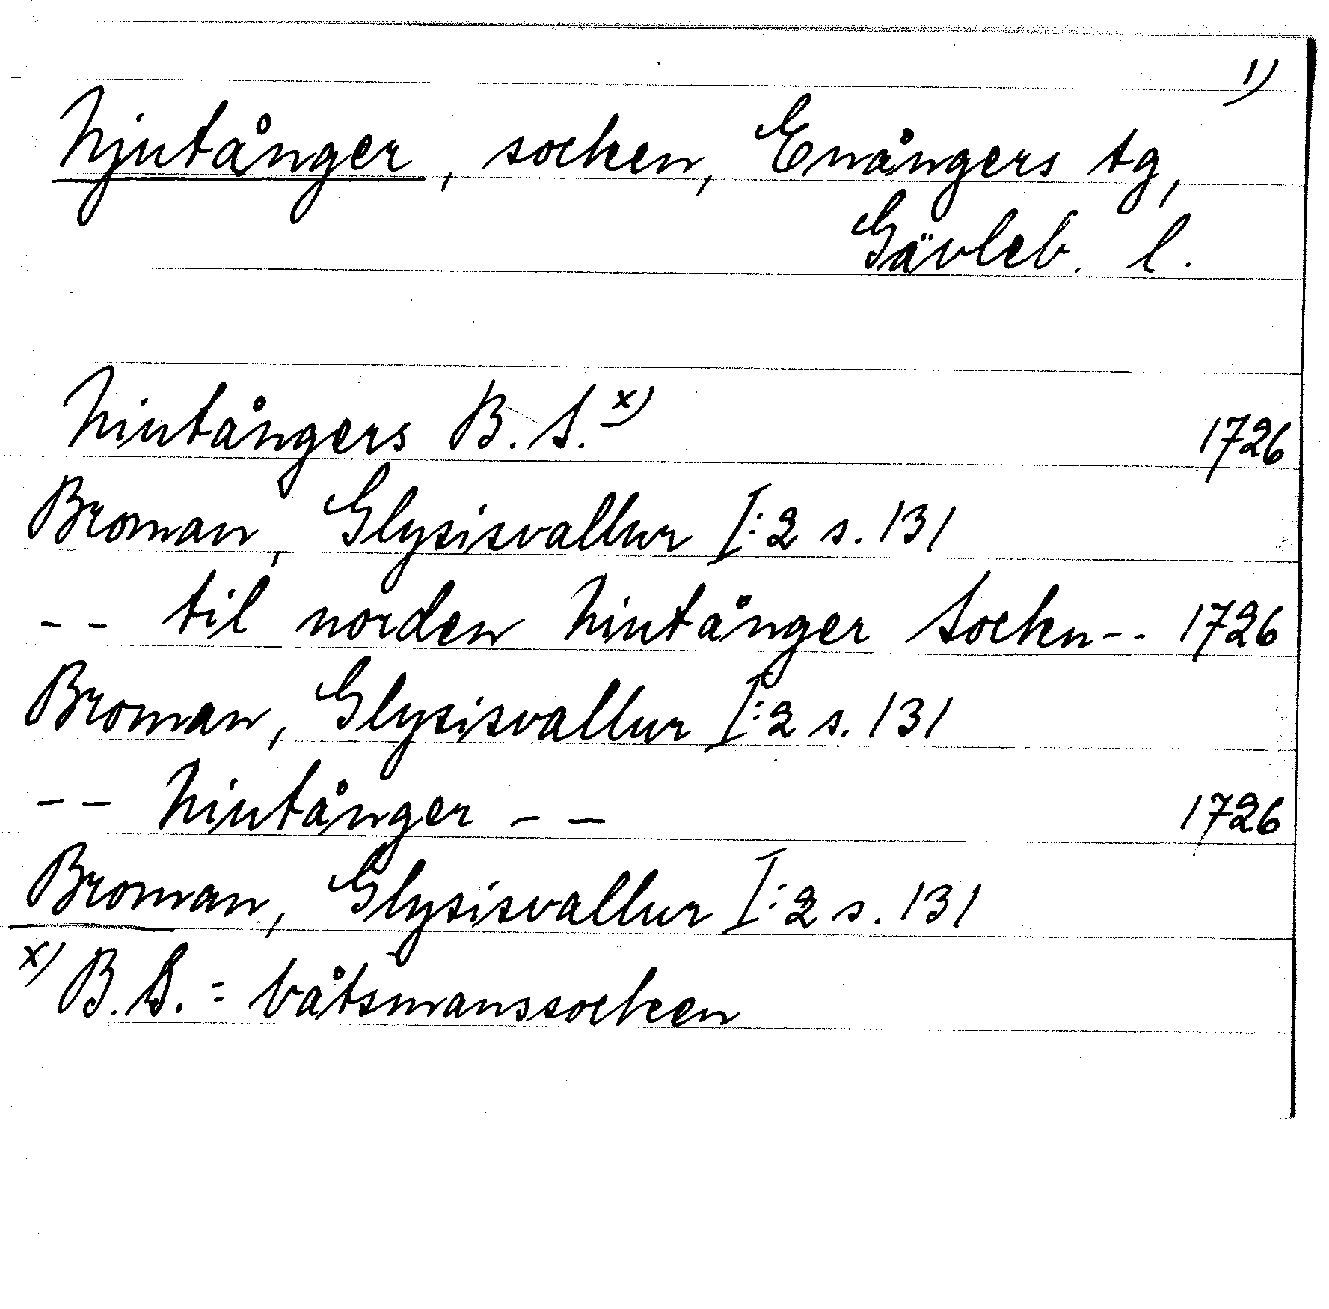 1)
Njutånger, socken, Enångers tg,
Gävleb. l.
Niutångers B. S. x) 1726
Broman, Glysisvallur I:2 s. 131
-- til norden Niutånger Sockn-- 1726
Broman, Glysisvallur I:2 s. 131
-- Niutånger -- 1726
Broman, Glysisvallur I:2 s. 131
x) B. S. = båtsmanssocken